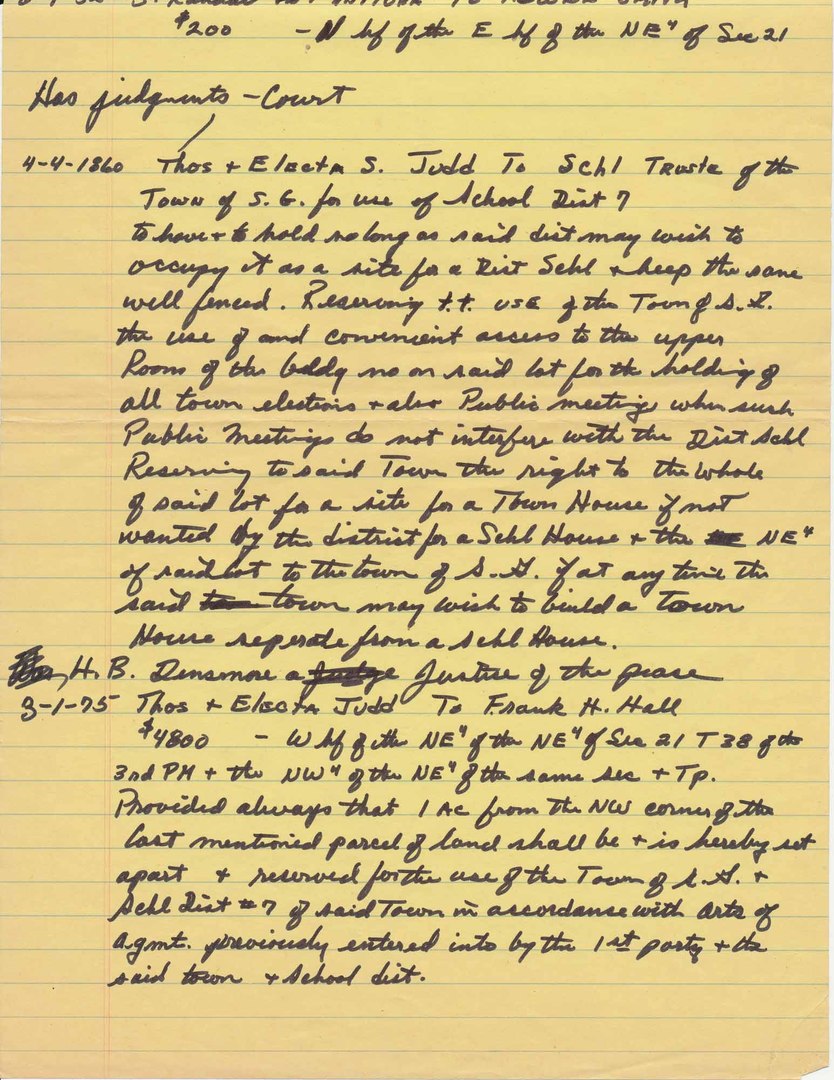 $200 - N hf of the E hf of the NE" of Sec 21
Has judgments - Court
4-4-1860 Thos + Electa S. Judd To Schl Truste of the
Town of S. G. for use of School Dist 7
to have + to hold so long as said dist may wish to
occupy it as a site for a Dist Schl + keep the same
well fenced. Reserving t.t. use of the Town of S.G.
the use of and convenient access to the upper
Room of the bddg no on said lot for the holding of
all town elections + also Public meetings when such
Public Meetings do not interfere with the Dist Schl
Reserving to said Town the right to the whole
of said lot for a site for a Town House if not
wanted by the district for a Schl House + the NE"
of said lot to the town of S.G. if at any time the
said town may wish to build a Town
House seperate from a Schl House.
H. B. Densmore a Justice of the pease
3-1-75 Thos + Electa Judd To Frank H. Hall
$4800 - W hf of the NE" of the NE" of Sec 21 T 38 of the
3rd PM + the NW" of the NE" of the same sec + Tp.
Provided always that 1 Ac from the NW corner of the
last mentioned parcel of land shall be + is hereby set
apart + reserved for the use of the Town of S.G. +
Schl Dist #7 of said Town in accordanse with Arts of
Agmt. previously entered into by the 1st party + the
said town + School dist.